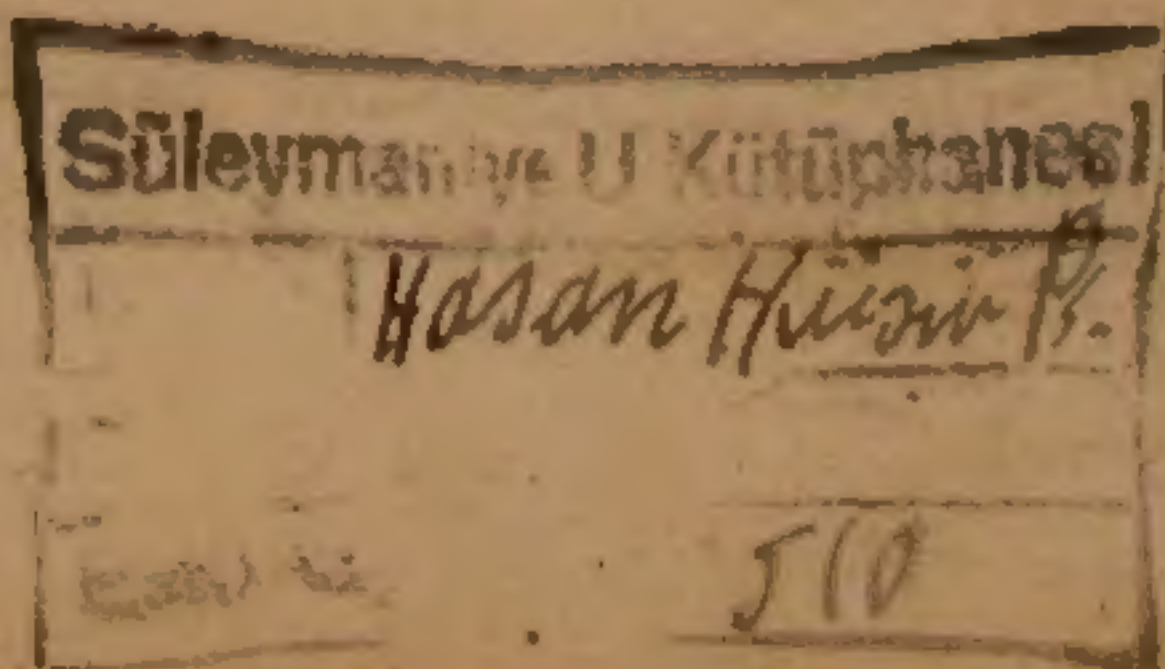 Süleymaniye U Kütüphanesi
Hasan Hüsnü P.
Eski
510